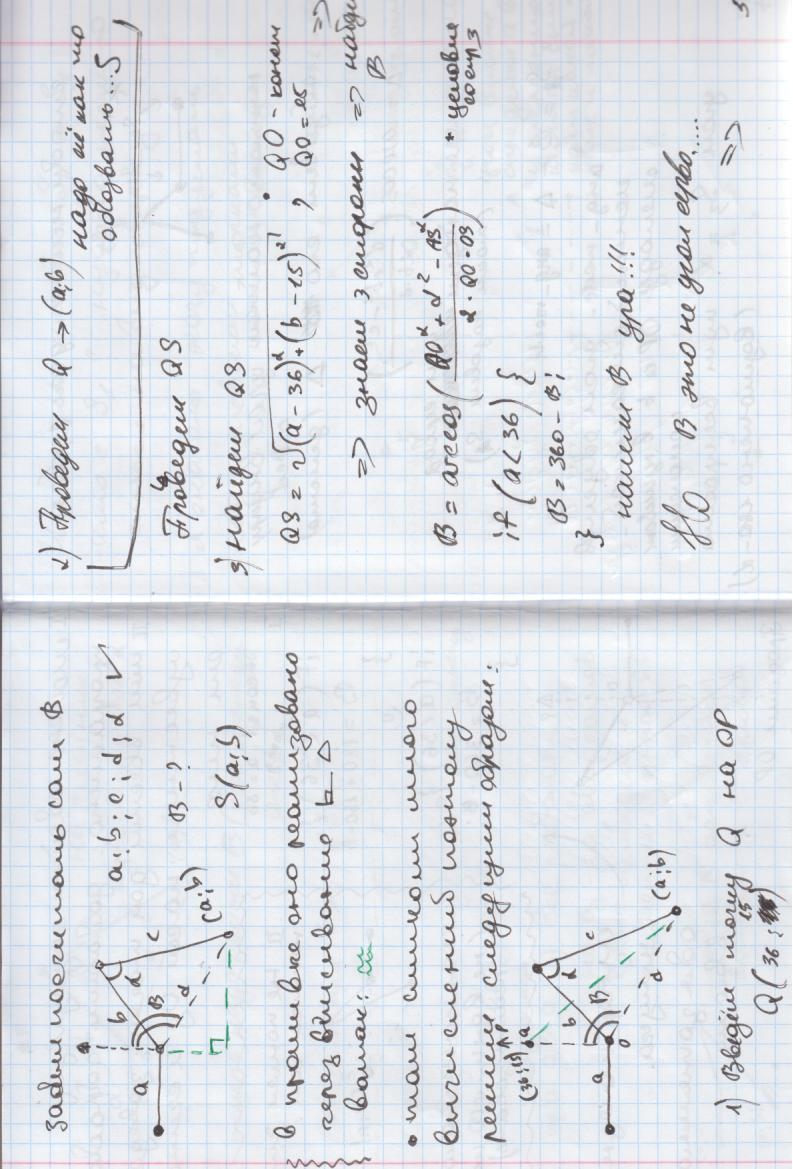 задача посчитать сам B
a; b; c; d; α √
B - ?
S(a; b)
a
b
c
α
d
B
(a; b)
в прошивке оно реализовано
через вписывание
Δ
вотак:
• там слишком много
вычислений поэтому
решаем следущим образом:
(36; 15)
a
b
c
α
d
B
O
(a; b)
1) Введём точку Q на OP
Q(36; 15)
2) Проведём Q → (a; b)
надо её как то
обозвать... S
Проведём QS
3) найдём QS
QS = √(a - 36)² + (b - 15)² , • QO - конст
QO = 15 =>
=> знаем 3 стороны => найдём
B
B = arccos( QO² + d² - QS² / 2 · QO · OS )
* условие
со стр 3
if (a < 36) {
B = 360 - B;
}
нашли B ура!!!
НО B это не угол серво.....
=>